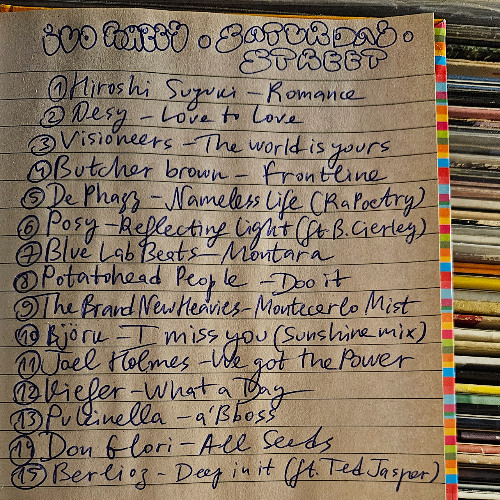 SATURDAY •
STREET
① Hiroshi Suzuki – Romance
② Desy – Love to Love
③ Visioneers – The world is yours
④ Butcher brown – Frontline
⑤ De Phazz – Nameless Life (RaPoetry)
⑥ Posy – Reflecting light (ft. B. Gerley)
⑦ Blue Lab Beats – Montara
⑧ Potatohead People – Doo it
⑨ The Brand New Heavies – Montecerlo Mist
⑩ Björk – I miss you (Sunshine mix)
⑪ Joel Holmes – We got the Power
⑫ Kiefer – What a Day
⑬ Pulcinella – a'Bboss
⑭ Don Glori – All Seeds
⑮ Berlioz – Deep in it (ft. Ted Jasper)